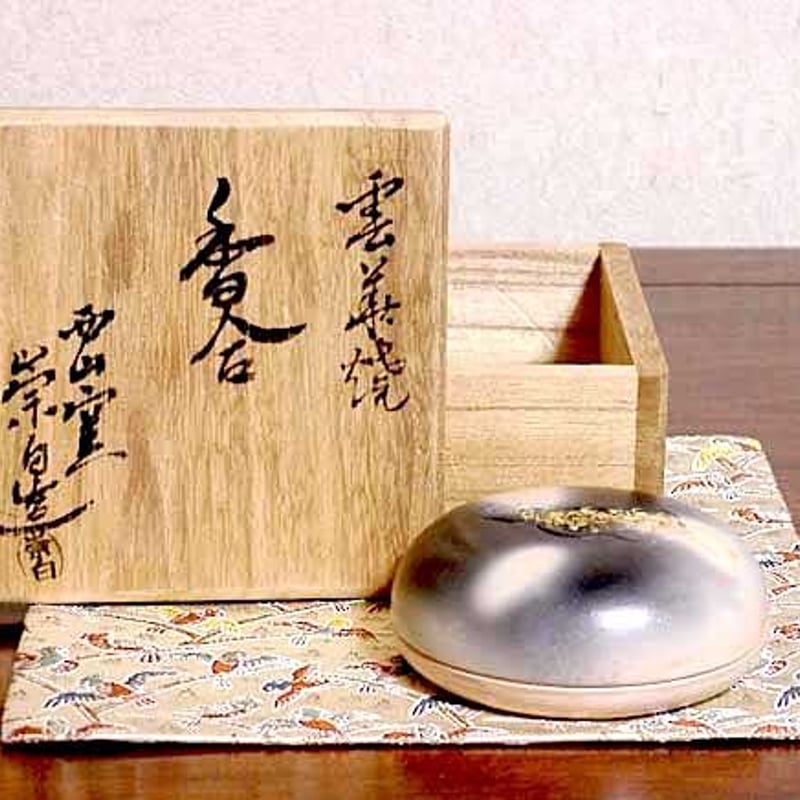 雲華焼
香合
西山窯
崇白造